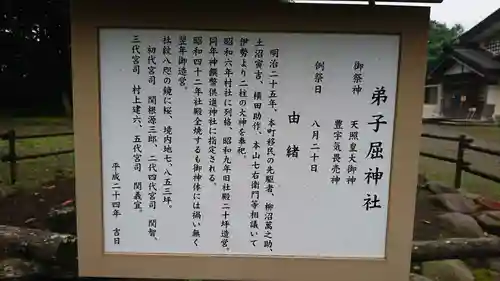 弟子屈神社
御祭神　天照皇大御神
豊宇気毘売神
例祭日　八月二十日
由緒
明治二十五年、本町移民の先駆者、柳沼萬之助、
土沼寅吉、横田助作、本山七右衛門等相議いて
伊勢より二柱の大神を奉祀。
昭和六年村社に列格、昭和九年旧社殿二十坪造営。
同年神饌幣帛供進神社に指定される。
昭和四十二年社殿全焼するも御神体には禍い無く
翌年御造営。
社紋八咫の鏡に桜、境内地七、八五三坪。
初代宮司　関根源三郎、二代四代宮司　関智、
三代宮司　村上建六、五代宮司　関義宜。
平成二十四年　吉日